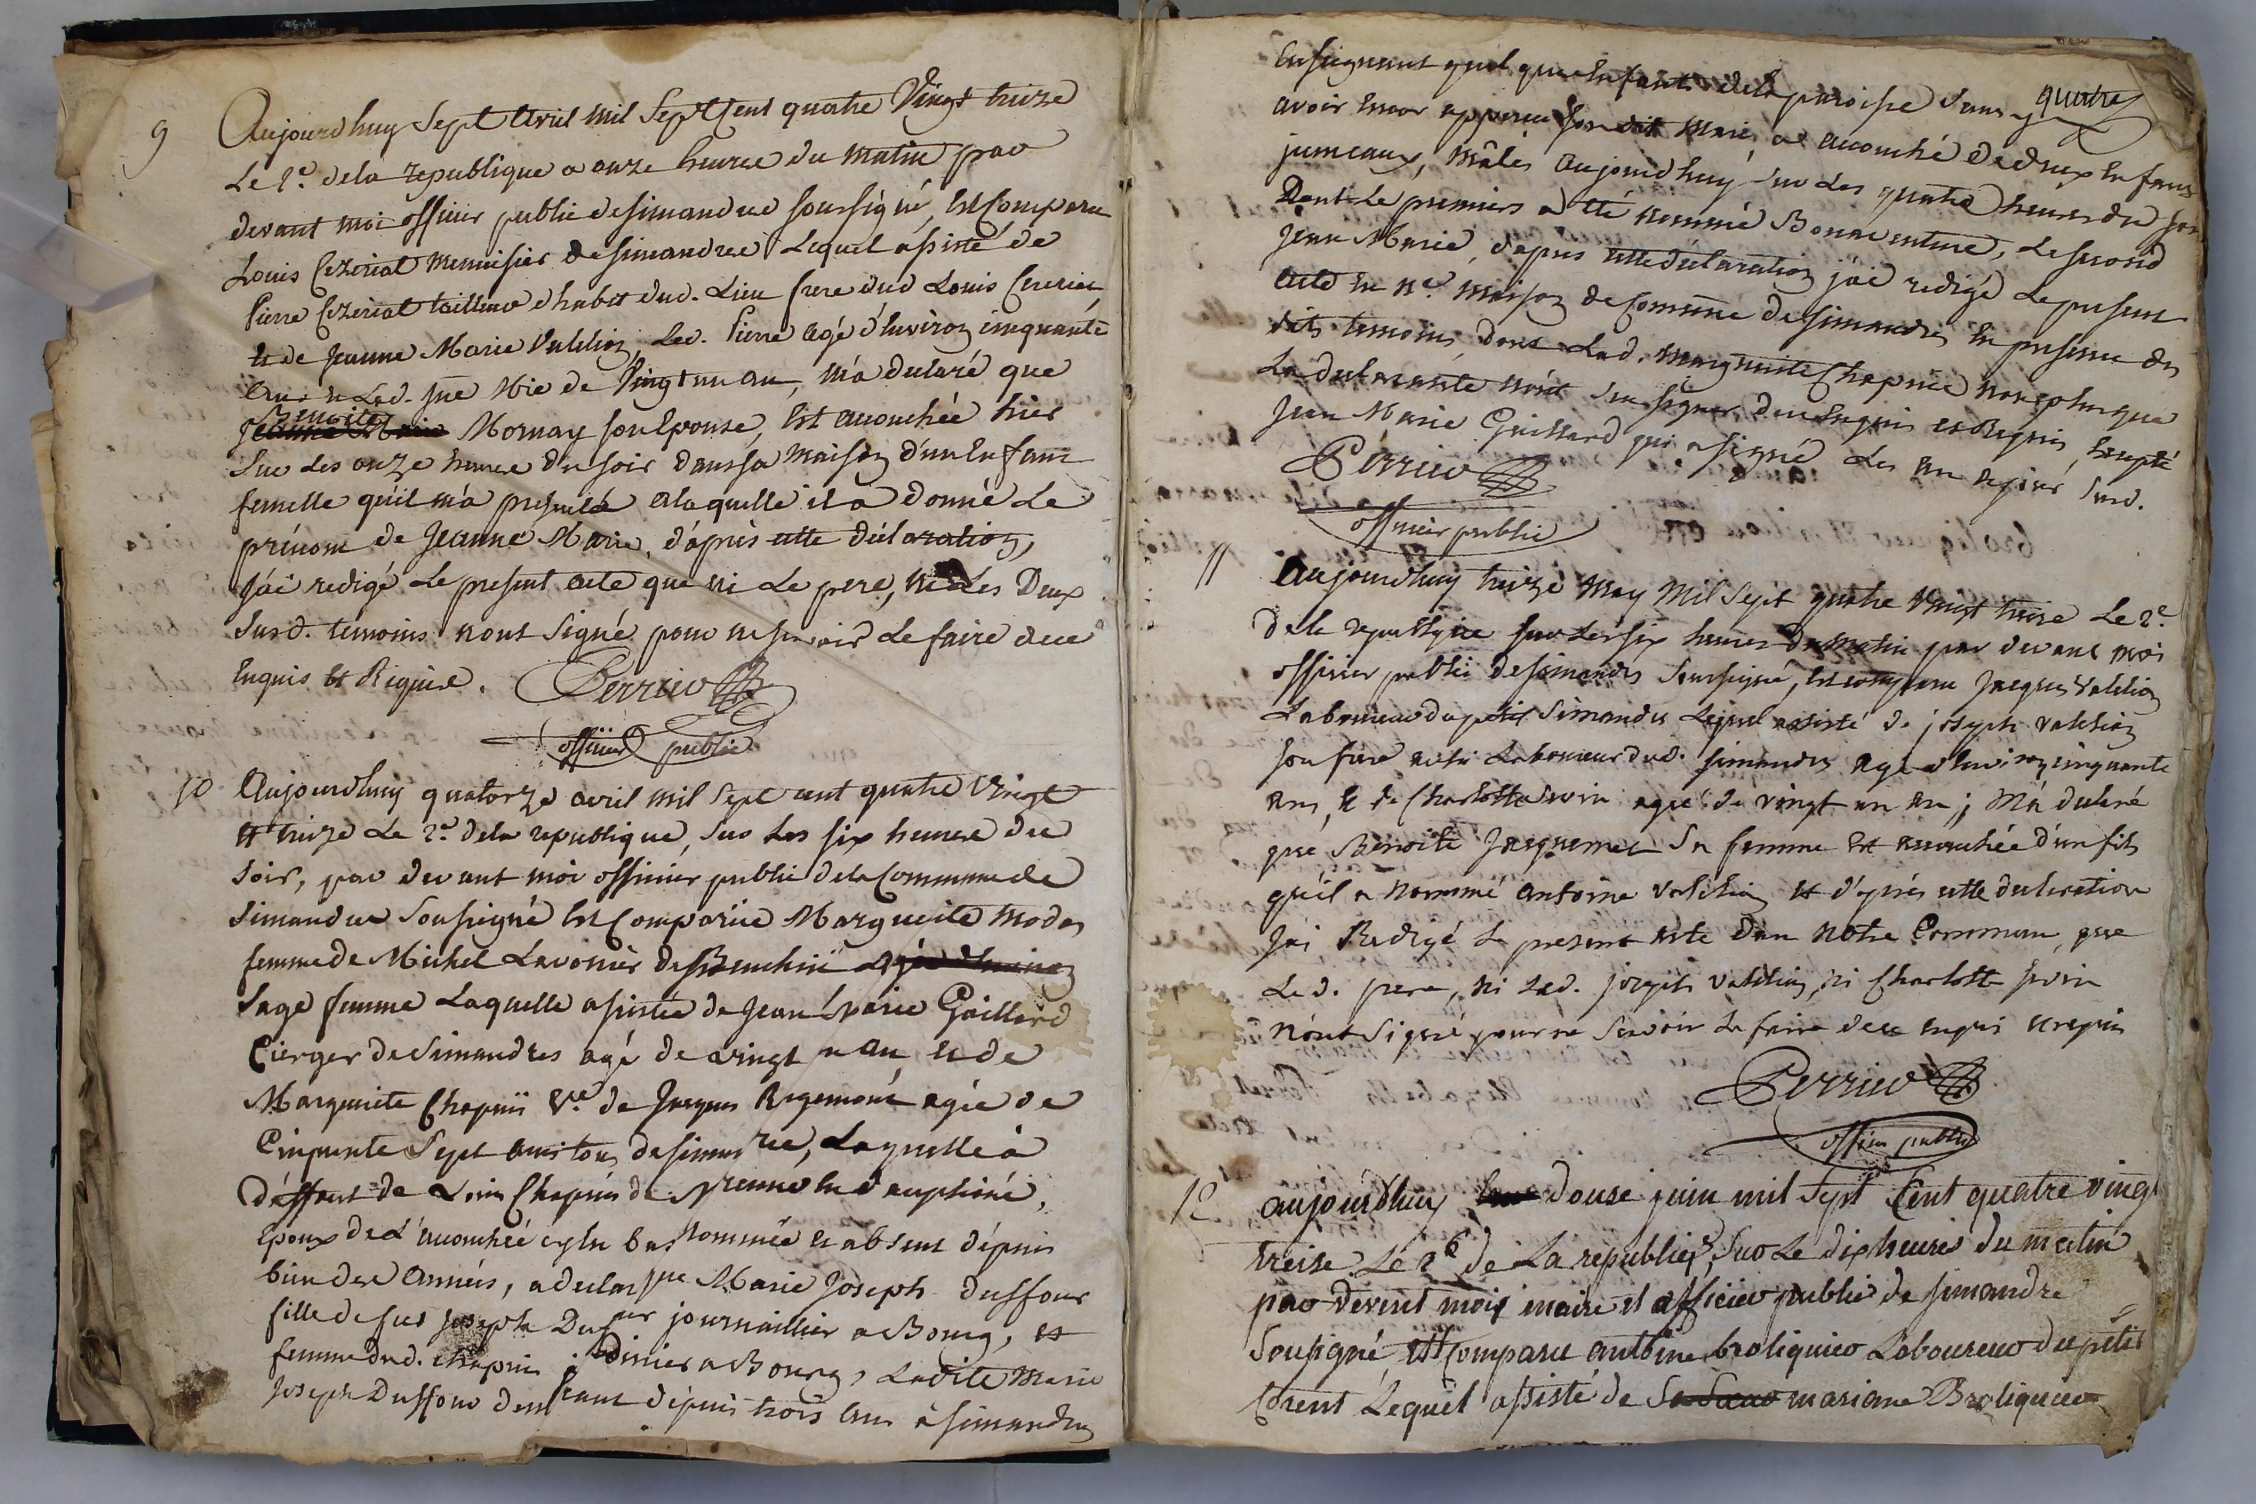 9
Aujourdhuy Sept Avril mil Sept Cent quatre Vingt treize
Le 2e. dela republique a onze heures du matin par
devant moi officier public desimandre soussigné, Est Comparu
Louis Cezeriat menuisier desimandre Lequel assisté de
Pierre Cezeriat tailleur dhabit dud. Lieu frere dud Louis Cezeriat
et de Jeanne Marie Valelion, Led. Pierre agé d'Environ cinquante
Ans et Lad. Jne Mie de Vingt un an, m'a declaré que
Benoite
Jeanne Marie Mornay son Epouse, Est accouchée hier
Sur Les onze heures du soir dans sa maison d'un Enfant
femelle quil m'a presenté alaquelle il a donné Le
prénom de Jeanne Marie, d'après cette declaration,
J'ai redigé Le present acte que ni Le pere, ni Les Deux
Susd. témoins n'ont Signé pour ne savoir Le faire dece
Enquis et Requis. Perrier
officier public
10
Aujourdhuy quatorze avril mil Sept cent quatre Vingt
et treize Le 2e. dela republique, Sur Les six heures du
Soir, par devant moi officier public dela Commune de
Simandre Soussigné Est Comparüe Marguerite Modas
femme de Michel Lavorier de
Sage femme Laquelle assistée de Jean Marie Gaillard
Cierger de Simandres agé de vingt un an, et de
Marguerite Chapuis Vve. de Jacques Rogemont agée de
Cinquante Sept ans tous desimandre, Laquelle à
Déffaut de Louis Chapuis de Vienne En dauphiné,
Epoux de L'accouchée cy En bas nommée et absent dépuis
bien des Années, a declaré que Marie Joseph Duffour
fille de feu Joseph Dufour journallier a Bourg, et
femme dud. Chapuis jardinier a Bourg, Ladite Marie
Joseph Duffour demeurant dépuis trois ans à Simandre
quatre
Enseignant quel que Enfants dela paroisse sans y
avoir Encor apperçu son dit Mari, a accouché de deux Enfans
jumeaux, mâles aujourdhuy Sur Les quatre heures du soir
Dont Le premiers a été nommé Bonaventure, Le second
Jean Marie, d'apres cette déclaration j'ai redigé Le present
acte En Ne. Maison de Commune de Simandres En presence des
dits temoins, dont Lad. Marguerite Chapuis non plus que
La declarante n'ont Seu signer, deu Enquis et Requis, Excepté
Jean Marie Gaillard qui a signé Les an et jour Susd.
Perrier
officier public
11
Aujourdhuy treize may Mil Sept quatre vingt treize Le 2e.
dela republique Sur Les six heures du Matin par devant moi
officier public de Simandres Soussigné, Est comparu Jacques Valelion
Laboureur du petit Simandres Lequel assisté de joseph valelion
Son frere aussi Laboureur dud. Simandres age d'environ cinquante
ans, et de Charlotte Sivin agée de vingt un an ; M'a declaré
que Benoite Jacquemet Sa femme Est accouchée d'un fils
qu'il a nommé antoine Valelion et d'après cette declaration
J'ai Redigé Le present acte dans Notre Commune, que
Led. pere, ni Led. joseph valelion, ni Charlotte Sivin
n'ont Signé pour ne Savoir Le faire dece enquis et requis
Perrier
officier public
12
aujourdhuy douse juin mil Sept Cent quatre ving
treise Lé 2e de La republique, Sur Le dix heures du matin
par devent mois maire et officier public de simandre
Sousigné Est Comparu antoine broliquier Laboureur du petit
Corent Lequel assisté de Sa Sœur mariane Broliquier